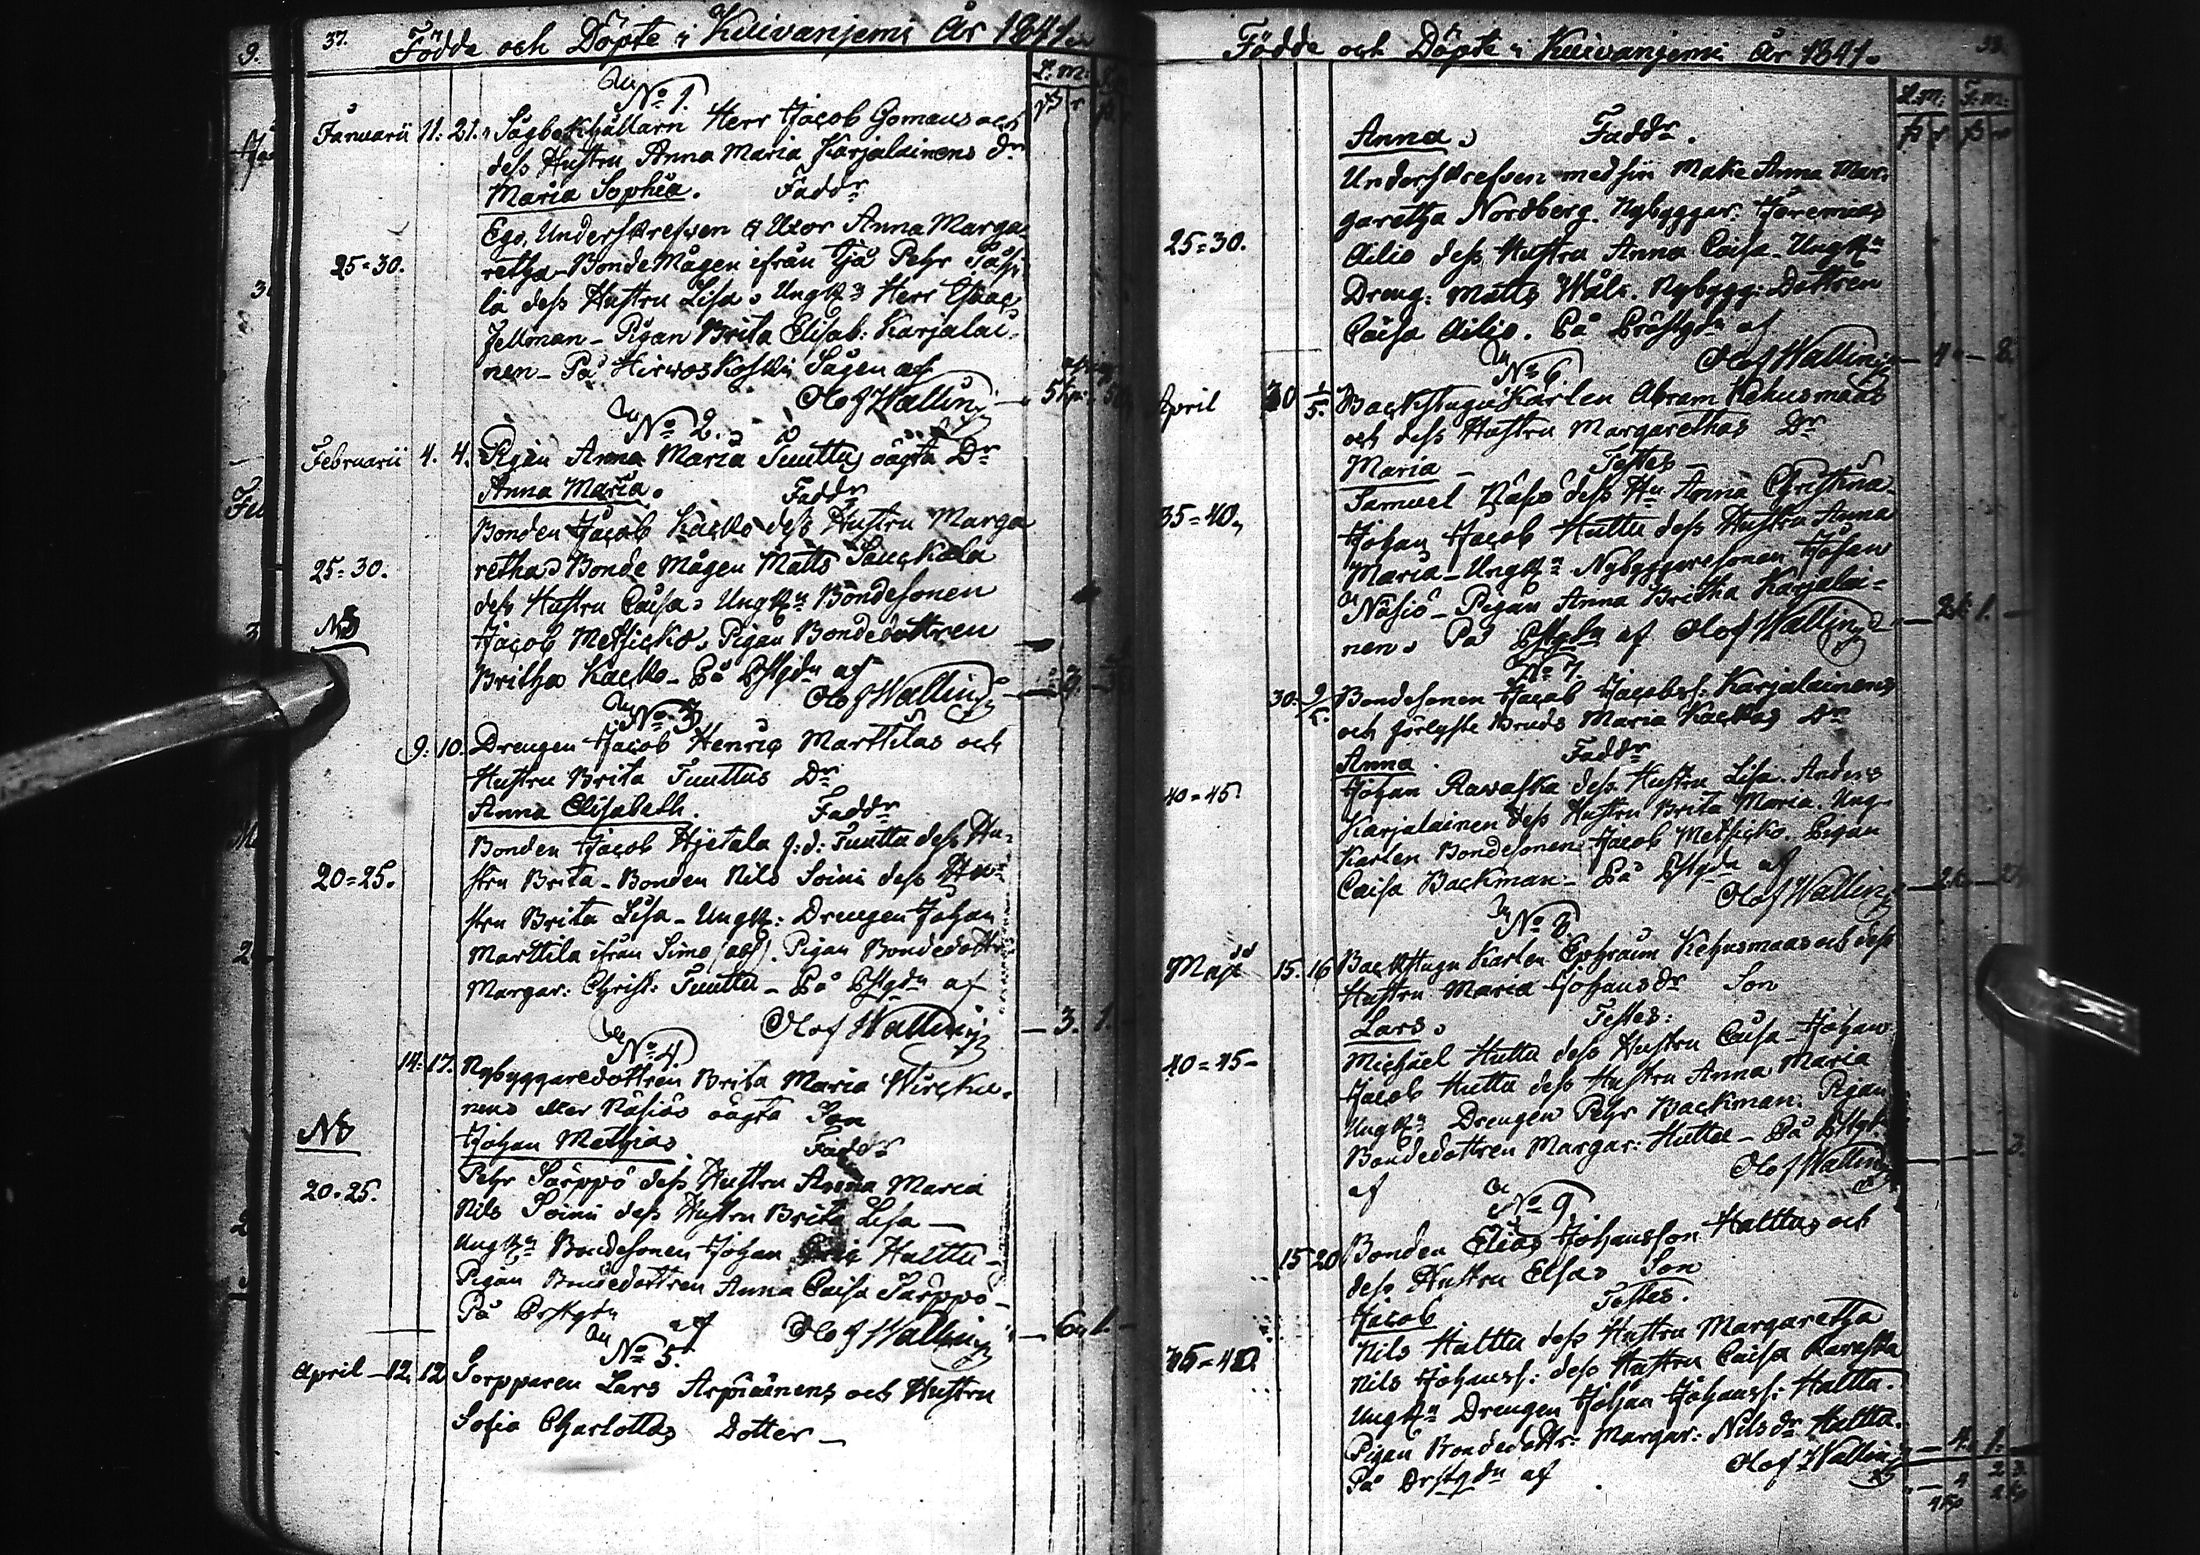 37.
Födde och Döpte i Kuivaniemi År 1841.
Januarii 11: 21.
No 1.
Sågbokhållarn Herr Jacob Gomans och
dess Hustru Anna Maria Karjalainens Dr
Maria Sophia. Faddr
Ego, Underskrefven & Uxor Anna Marga
25=30.
retha - Bonde Mågen ifrån Ijå Pehr
la dess Hustru Lisa. Ungk: Herr Isaac
Zellman - Pigan Brita Elisab: Karjalai-
nen - På Hirvoskoski Sågen af
Olof Wallin
No 2.
Februarii 4. 4.
Pigan Anna Maria Tuuttus oägta Dr
Anna Maria. Faddr
Bonden Jacob Kacko dess Hustru Marga
25=30.
retha Bonde Mågen Matts Sauckala
dess Hustru Caisa. Ungkn Bondesonen
N8
Jacob Metsicko. Pigan Bondedottren
Britha Kacko - På Pstgdn af
Olof Wallin
No 3
9: 10.
Drengen Jacob Henric Marttilas och
Hustru Brita Tuuttus Dr
Anna Elisabeth. Faddr
Bonden Jacob Hjetala f:d: Tuuttu dess Hu-
20=25.
stru Brita - Bonden Nils Soini dess Hu-
stru Brita Lisa - Ungk: Drengen Johan
Marttila ifrån Simo. Pigan Bondedottr
Margar: Christ: Tuuttu - På Pstgdn af
Olof Wallin
3. 1.
No 4.
14: 17.
Nybyggaredottren Brita Maria Wircku-
nens eller Näsiös oägta Son
N8
Johan Mathias. Faddr
20=25.
Pehr Särppö dess Hustru Anna Maria
Nils Soini dess Hustru Brita Lisa -
Ungkn Bondesonen Johan Eric Halttu -
Pigan Bondedottren Anna Caisa Särppö -
På Prstgdn af Olof Wallin
6. 1.
No 5.
April - 12. 12
Torpparen Lars Arpiainens och Hustru
Sofia Charlottas Dotter -
Födde och Döpte i Kuivaniemi År 1841.
L:m: F:m:
Anna. Faddr.
Underskrefven med sin Maka Anna Mar-
garetha Nordberg. Nybyggar: Jeremias
25=30.
Ailio dess Hustru Anna Caisa - Ungkn
Dreng: Matts Wälk. Nybygg: Dottren
Caisa Ailio. På Prästgdn af
Olof Wallin
No 6
April 30 1/5.
Backstugu Karlen Abram Kehusmaas
och dess Hustru Margarethas Dr
Maria - Testes -
Samuel Näsiö dess Hu Anna Christina -
35=40.
Johan Jacob Huttu dess Hustru Anna
Maria - Ungkn Nybyggaresonen Johan
Näsiö - Pigan Anna Britha Karjalai-
nen. På Pstgdn af Olof Wallin
No 7.
30: 9/5.
Bondesonen Jacob Jacobss: Karjalainens
och förlofste Bruds Maria Kackos Dr
Anna. Faddr
Johan Ravaska dess Hustru Lisa. Anders
40=45.
Karjalainen dess Hustru Brita Maria. Ung-
Karlen Bondesonen Jacob Metsicko. Pigan
Caisa Backman - På Pstgdn af
Olof Wallin
No 8.
Maji 15. 16
Backstugu Karlen Ephraim Kehusmaas och dess
Hustru Maria Johansdr Son
Lars. Testes:
Michael Huttu dess Hustru Caisa - Johan
40=45-
Jacob Huttu dess Hustru Anna Maria
Ungkn Drengen Pehr Backman. Pigan
Bondedottren Margar: Huttu - På Pstgd:
af Olof Wallin
No 9.
15 20
Bonden Elias Johansson Halttus och
dess Hustru Elsas Son
Jacob Testes.
Nils Halttu dess Hustru Margaretha
Nils Johanss: dess Hustru Caisa Ravaska
Ungkn Drengen Johan Johanss: Halttu.
Pigan Bondedottr: Margar: Nilsdr Halttu.
På Prstgdn af Olof Wallin